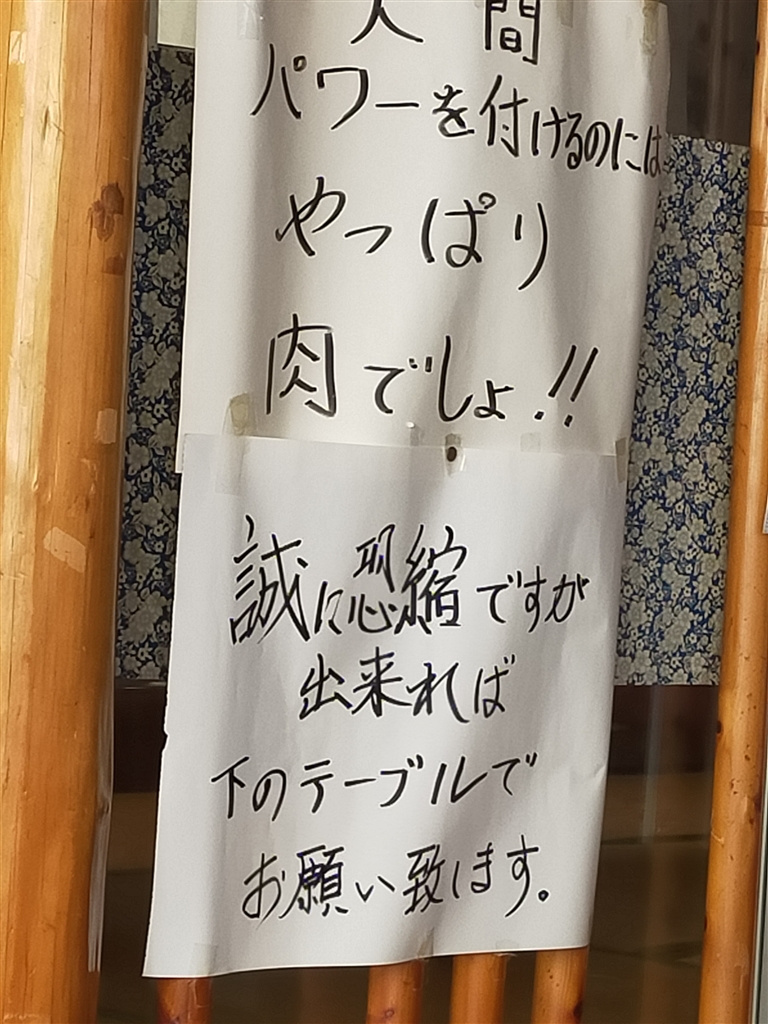 人間
パワーを付けるのには
やっぱり
肉でしょ.!!
誠に恐縮ですが
出来れば
下のテーブルで
お願い致します。